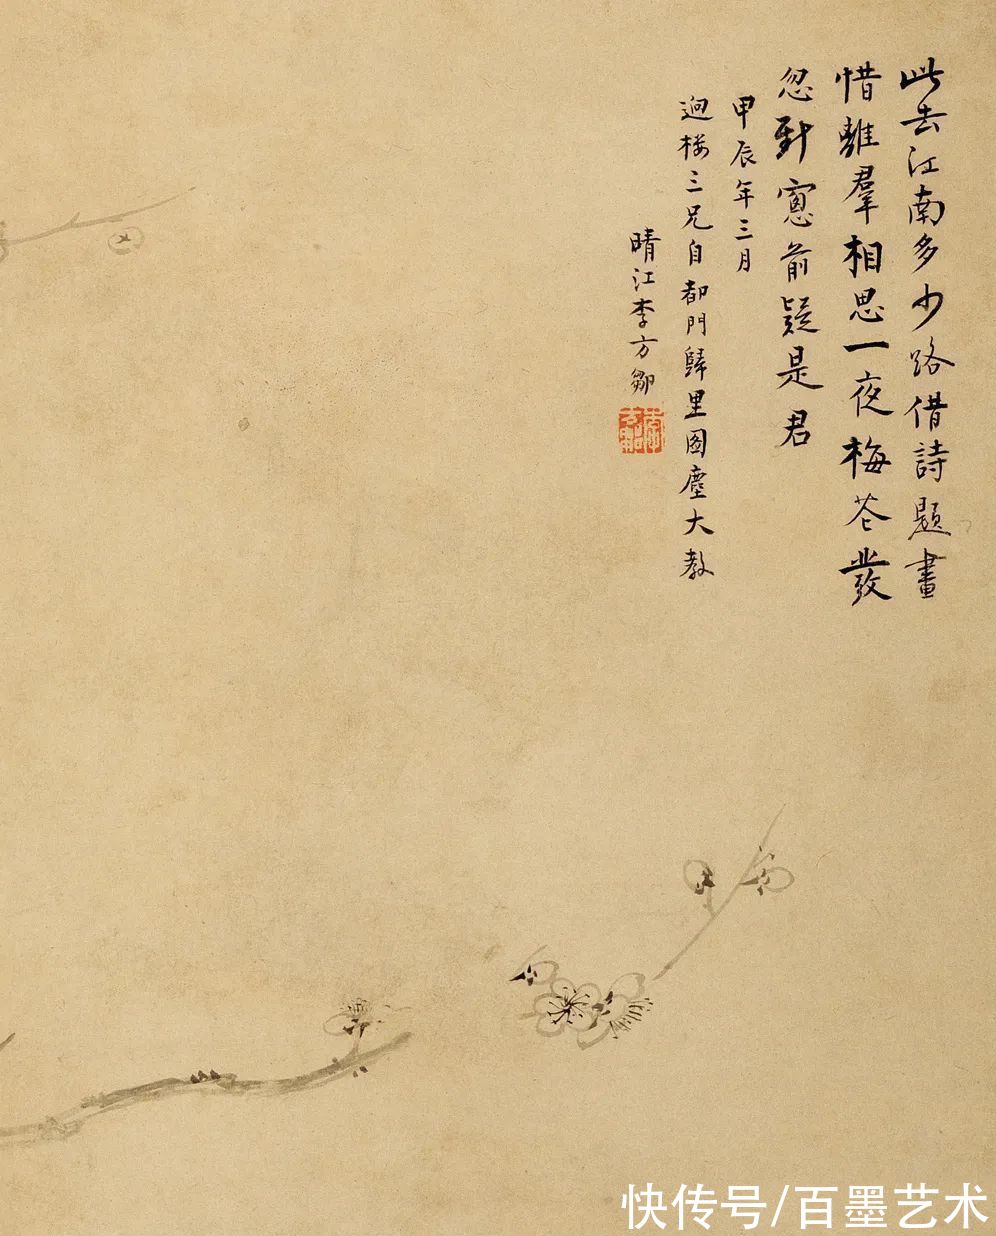 此去江南多少路借詩題畫
惜離羣相思一夜梅花發
忽到窻前疑是君
甲辰年三月
三兄自都門歸里圖塵大教
晴江李方
快传号/百墨艺术